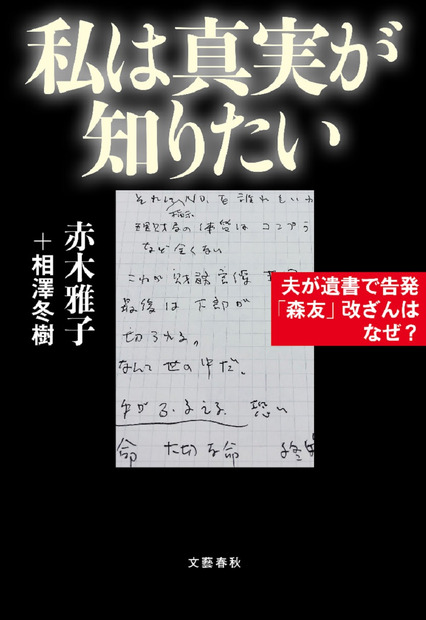 私は真実が
知りたい
赤木雅子
＋相澤冬樹
夫が遺書で告発
「森友」改ざんは
なぜ？
それにNO.を誰れもいわ
指示
理財局の体質はコンプラ
など全くない
これが財務官僚
最後は下部が
切られる。
なんて世の中だ。
手がふるえる、恐い
命 大切な命
文藝春秋